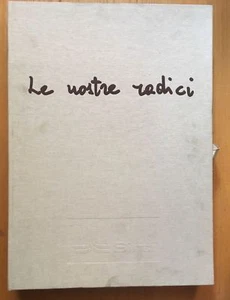 Le nostre radici